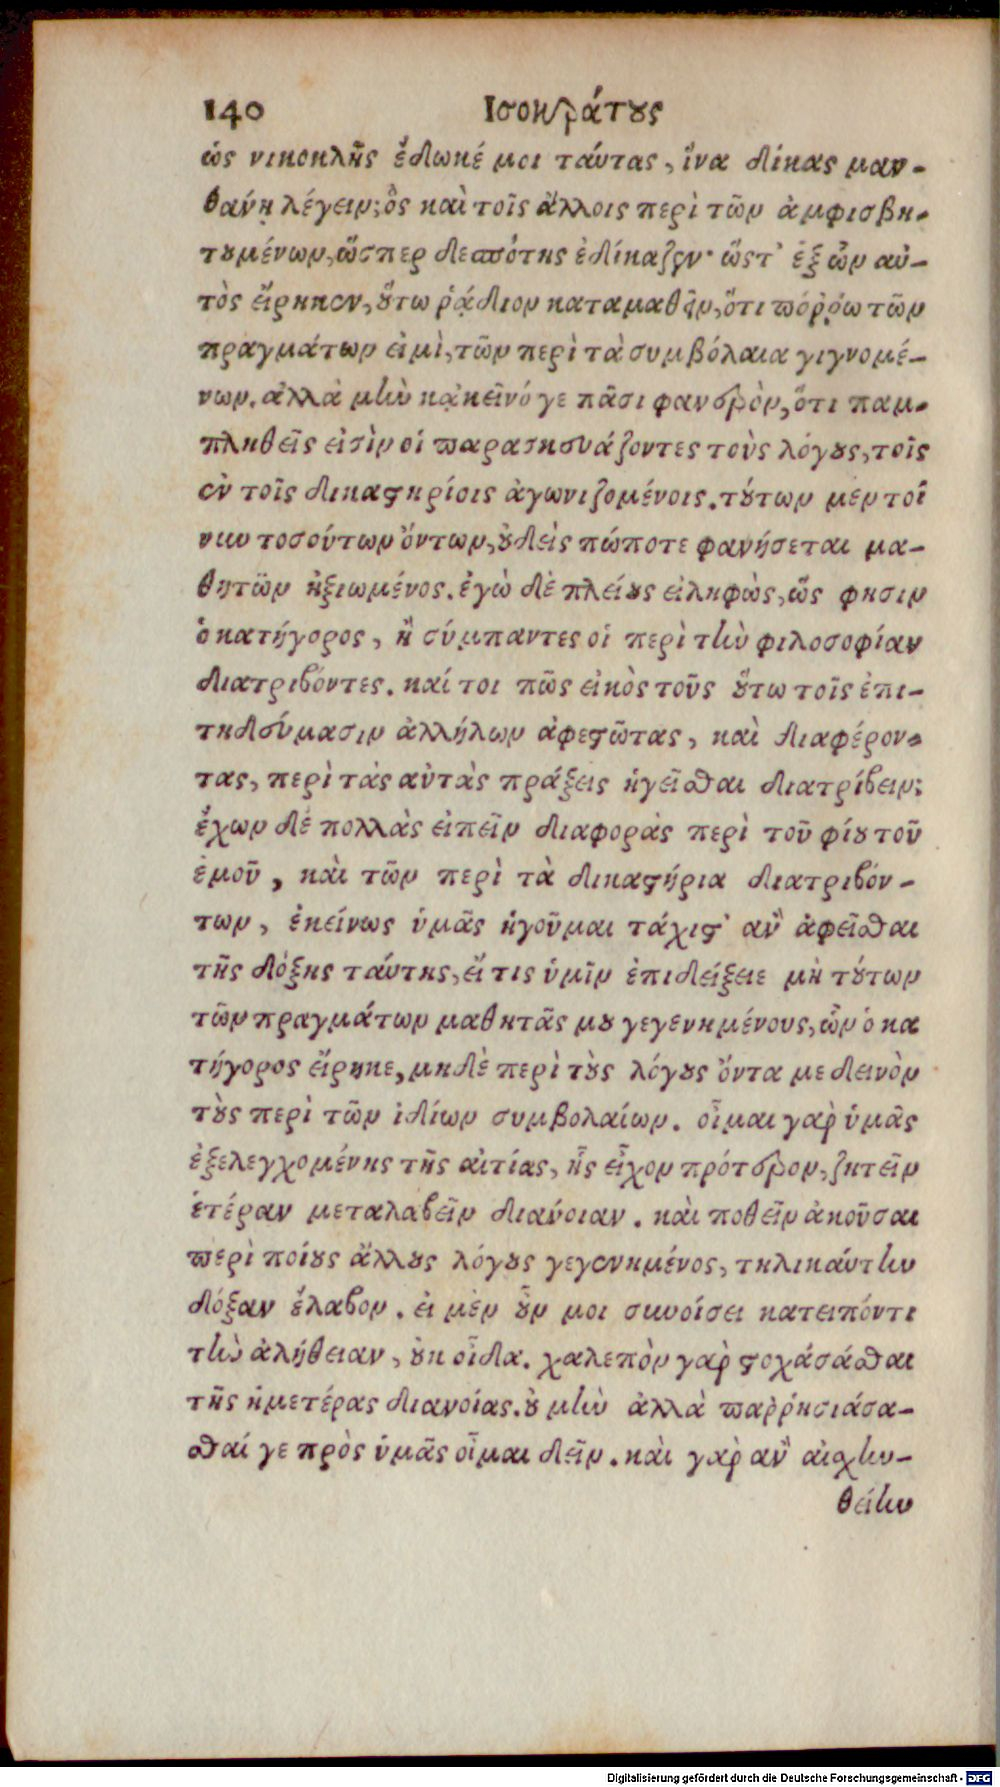 140 Ισοκράτους
ὡς νικοκλῆς ἔδωκέ μοι ταύτας, ἵνα δίκας μαν-
θάνῃ λέγειν; ὃς καὶ τοῖς ἄλλοις περὶ τῶν ἀμφισβη-
τουμένων, ὥσπερ δεσπότης ἐδίκαζεν· ὥστ' ἐξ ὧν αὐ-
τὸς εἴρηκεν, οὕτω ῥάδιον καταμαθεῖν, ὅτι πόῤῥω τῶν
πραγμάτων εἰμὶ, τῶν περὶ τὰ συμβόλαια γιγνομέ-
νων. ἀλλὰ μὴν κᾀκεῖνό γε πᾶσι φανερὸν, ὅτι παμ-
πληθεῖς εἰσὶν οἱ παρασκευάζοντες τοὺς λόγους, τοῖς
ἐν τοῖς δικαστηρίοις ἀγωνιζομένοις. τούτων μεν τοί
νυν τοσούτων ὄντων, οὐδεὶς πώποτε φανήσεται μα-
θητῶν ἠξιωμένος. ἐγὼ δὲ πλείους εἰληφὼς, ὥς φησιν
ὁ κατήγορος, ἢ σύμπαντες οἱ περὶ τὴν φιλοσοφίαν
διατριβόντες. καί τοι πῶς εἰκὸς τοῦς οὕτω τοῖς ἐπι-
τηδεύμασιν ἀλλήλων ἀφεστῶτας, καὶ διαφέρον-
τας, περὶ τὰς αὐτὰς πράξεις ἡγεῖσθαι διατρίβειν;
ἔχων δὲ πολλὰς εἰπεῖν διαφορὰς περὶ τοῦ φίου τοῦ
ἐμοῦ, καὶ τῶν περὶ τὰ δικαστήρια διατριβόν-
των, ἐκείνως ὑμᾶς ἡγοῦμαι τάχιστ' ἂν ἀφεῖσθαι
τῆς δόξης ταύτης, εἴ τις ὑμῖν ἐπιδείξειε μὴ τούτων
τῶν πραγμάτων μαθητάς μου γεγενημένους, ὧν ὁ κα
τήγορος εἴρηκε, μηδὲ περὶ τοὺς λόγους ὄντα με δεινὸν
τοὺς περὶ τῶν ἰδίων συμβολαίων. οἶμαι γὰρ ὑμᾶς
ἐξελεγχομένης τῆς αἰτίας, ἧς εἶχον πρότερον, ζητεῖν
ἑτέραν μεταλαβεῖν διάνοιαν. καὶ ποθεῖν ἀκοῦσαι
περὶ ποίους ἄλλους λόγους γεγενημένος, τηλικαύτην
δόξαν ἔλαβον. εἰ μὲν οὖν μοι συνοίσει κατειπόντι
τὴν ἀλήθειαν, οὐκ οἶδα. χαλεπὸν γὰρ στοχάσάσθαι
τῆς ἡμετέρας διανοίας. οὐ μὴν ἀλλὰ παῤῥησιάσα-
σθαί γε πρὸς ὑμᾶς οἶμαι δεῖν. καὶ γὰρ ἂν αἰσχυν-
θείην
Digitalisierung gefördert durch die Deutsche Forschungsgemeinschaft - DFG